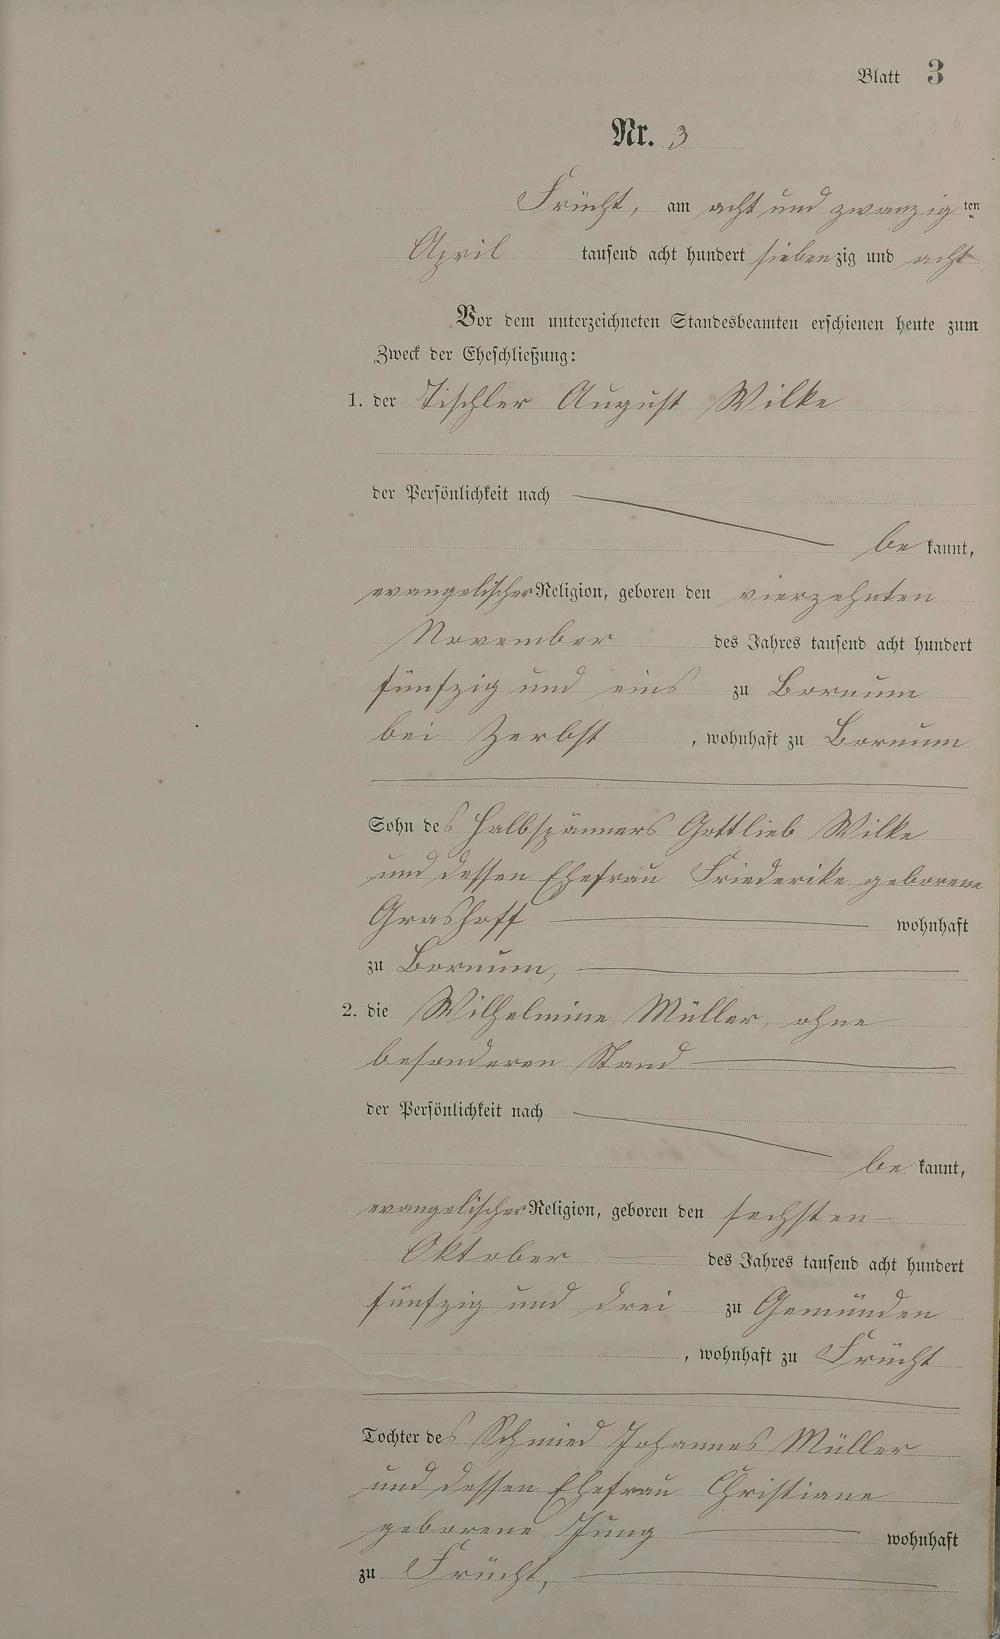 Blatt 3
Nr. 3
Frücht, am acht und zwanzig ten
April tausend acht hundert siebenzig und acht
Vor dem unterzeichneten Standesbeamten erschienen heute zum
Zweck der Eheschließung:
1. der Tischler August Wilke
der Persönlichkeit nach
be kannt,
evangelischer Religion, geboren den vierzehnten
November des Jahres tausend acht hundert
fünfzig und eins zu Bornum
bei Zerbst, wohnhaft zu Bornum
Sohn des Halbspänners Gottlieb Wilke
und dessen Ehefrau Friederike geborene
Grashoff wohnhaft
zu Bornum,
2. die Wilhelmine Müller, ohne
besonderen Stand
der Persönlichkeit nach
be kannt,
evangelischer Religion, geboren den sechsten
Oktober des Jahres tausend acht hundert
fünfzig und drei zu Gemünden
, wohnhaft zu Frücht
Tochter des Schmied Johannes Müller
und dessen Ehefrau Christiane
geborene Jung wohnhaft
zu Frücht,